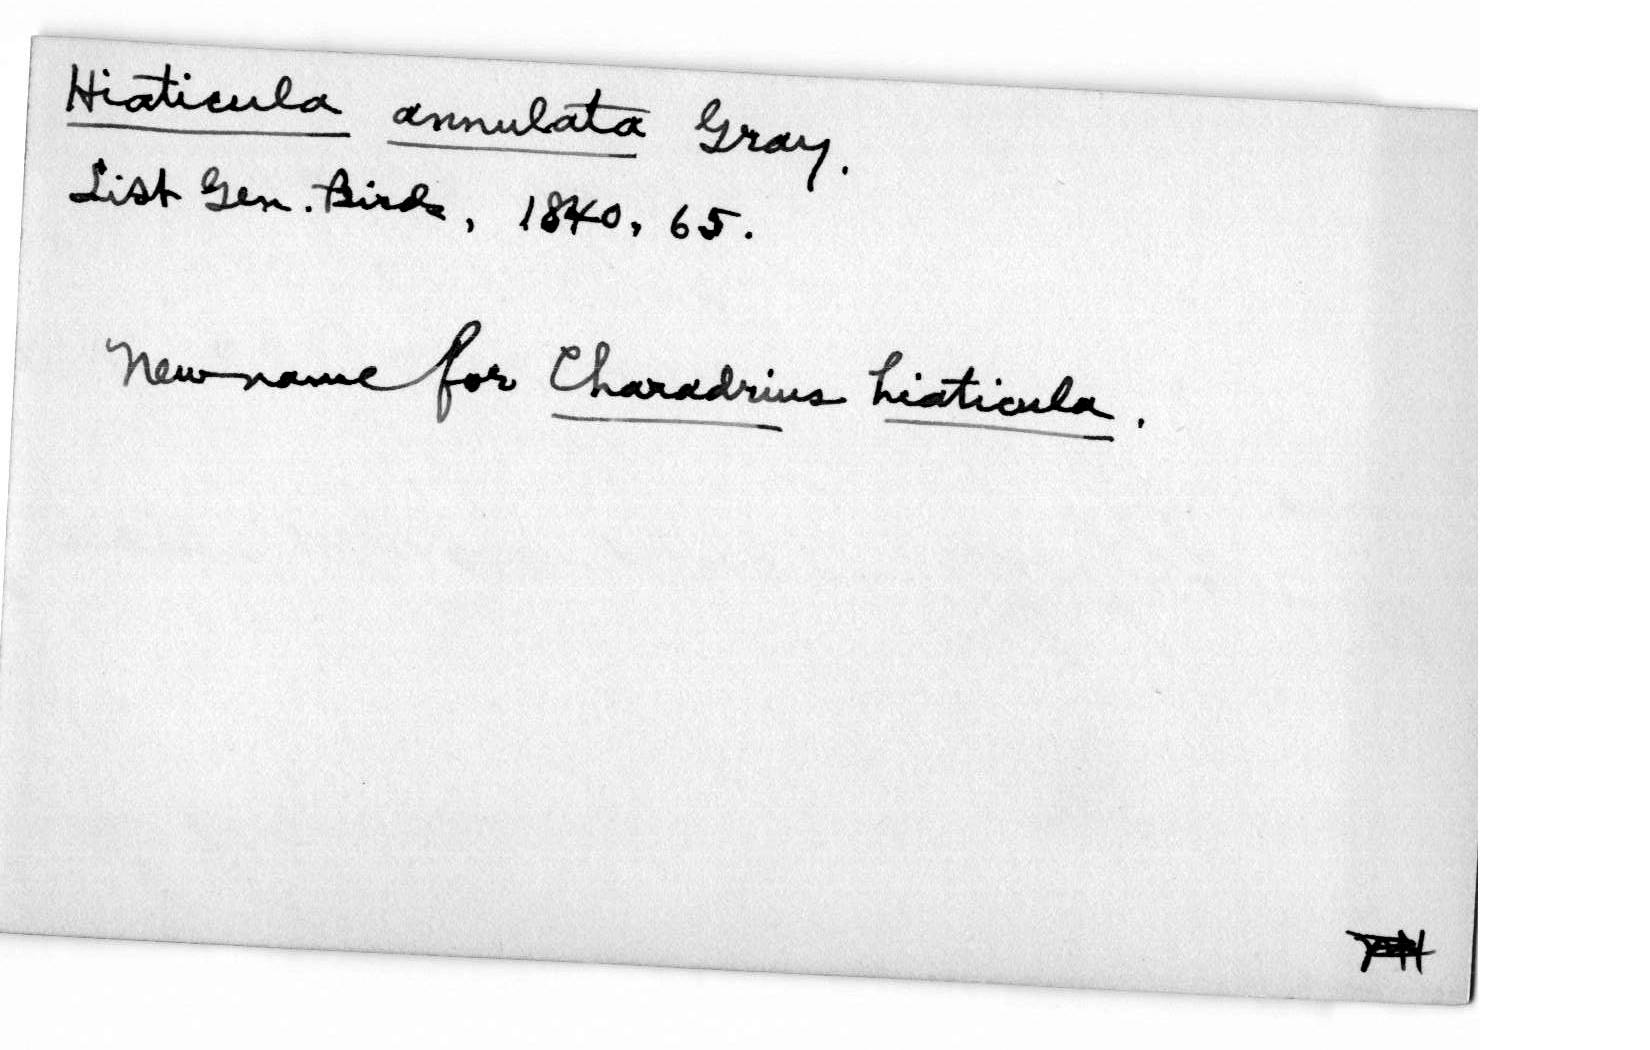 Hiaticula annulata Gray.
List Gen. Birds, 1840, 65.
New name for Charadrius hiaticula.